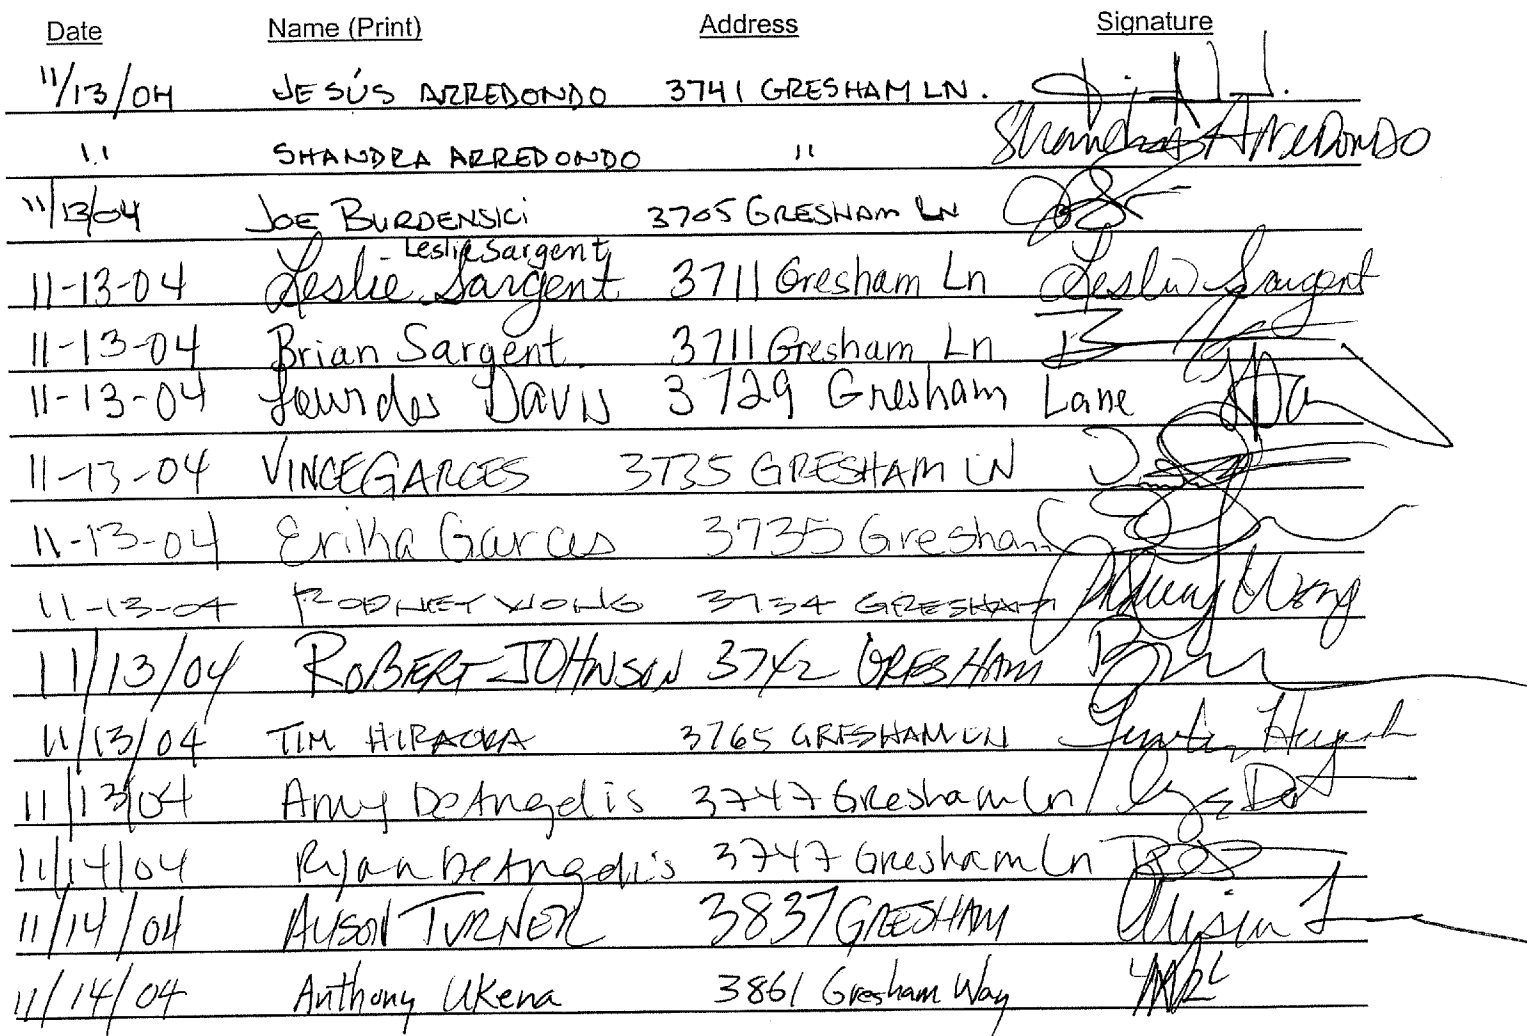 Date Name (Print) Address Signature
11/13/04 JESÚS ARREDONDO 3741 GRESHAM LN.
" SHANDRA ARREDONDO " Shandra ARREDONDO
11/13/04 JOE BURDENSKI 3705 GRESHAM LN
Leslie Sargent
11-13-04 Leslie Sargent 3711 Gresham Ln Leslie Sargent
11-13-04 Brian Sargent 3711 Gresham Ln
11-13-04 Lourdes Davis 3729 Gresham Lane
11-13-04 VINCE GARCES 3735 GRESHAM LN
11-13-04 Erika Garces 3735 Gresham
11-13-04 RODNEY WONG 3734 GRESHAM Rodney Wong
11/13/04 ROBERT JOHNSON 3742 GRESHAM
11/13/04 TIM HIRAOKA 3765 GRESHAM LN
11/13/04 Amy DeAngelis 3747 Gresham Ln
11/14/04 Ryan DeAngelis 3747 Gresham Ln
11/14/04 ALISON TURNER 3837 GRESHAM Alison T
11/14/04 Anthony Ukena 3861 Gresham Way